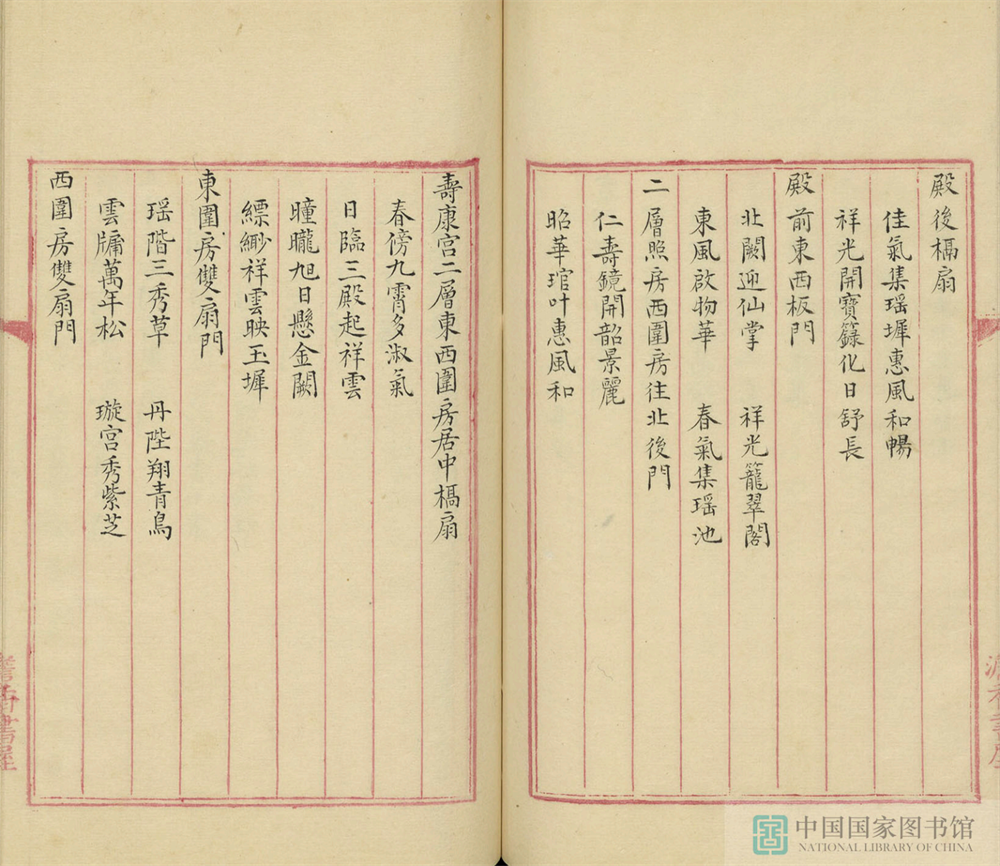 殿後槅扇
佳氣集瑶墀惠風和暢
祥光開寶籙化日舒長
殿前東西板門
北闕迎仙掌　祥光籠翠閣
東風啟物華　春氣集瑶池
二層照房西圍房往北後門
仁壽鏡開韶景麗
昭華琯叶惠風和
壽康宫二層東西圍房居中槅扇
春傍九霄多淑氣
日臨三殿起祥雲
曈曨旭日懸金闕
縹緲祥雲映玉墀
東圍房雙扇門
瑶階三秀草　丹陛翔青鳥
雲牖萬年松　璇宫秀紫芝
西圍房雙扇門
中国国家图书馆
NATIONAL LIBRARY OF CHINA